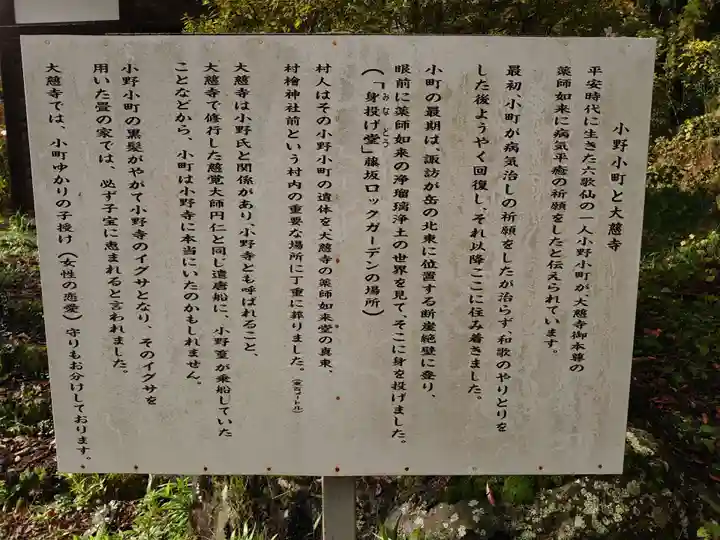 小野小町と大慈寺
平安時代に生きた六歌仙の一人小野小町が大慈寺御本尊の
薬師如来に病気平癒の祈願をしたと伝えられています。
最初、小町が病気治しの祈願をしたが治らず、和歌のやりとりを
した後ようやく回復し、それ以降ここに住み着きました。
小町の最期は、諏訪が岳の北東に位置する断崖絶壁に登り、
眼前に薬師如来の浄瑠璃浄土の世界を見て、そこに身を投げました。
(「身投げ堂」藤坂ロックガーデンの場所)
みなどう
村人はその小野小町の遺体を、大慈寺の薬師如来堂の真東、
村檜神社前という村内の重要な場所に丁重に葬りました。
大慈寺は小野氏と関係があり、小野寺とも呼ばれること、
大慈寺で修行した慈覚大師円仁と同じ遣唐船に、小野篁が乗船していた
ことなどから、小町は小野寺に本当にいたのかもしれません。
小野小町の黒髪がやがて小野寺のイグサとなり、そのイグサを
用いた畳の家では、必ず子宝に恵まれると言われました。
大慈寺では、小町ゆかりの子授け(女性の恋愛)守りもお分けしております。